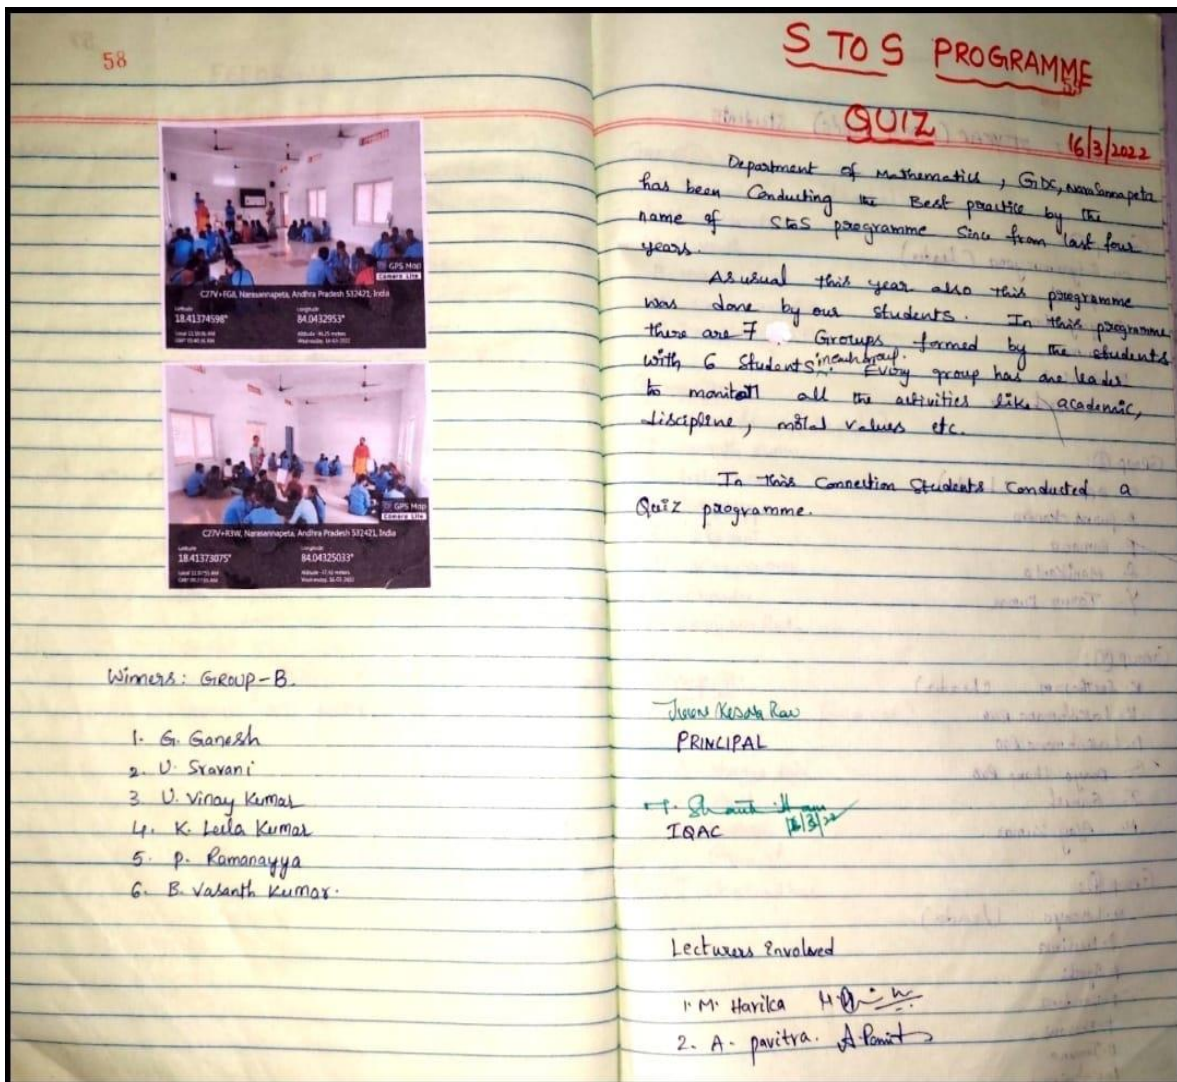 58
GPS Map
Camera Lite
C27V+FG8, Narasannapeta, Andhra Pradesh 532421, India
Latitude
Longitude
18.41374598°
84.0432953°
GPS Map
Camera Lite
C27V+R3W, Narasannapeta, Andhra Pradesh 532421, India
Latitude
Longitude
18.41373075°
84.04325033°
Winners: GROUP-B.
1. G. Ganesh
2. U. Sravani
3. U. Vinay Kumar
4. K. Leela Kumar
5. P. Ramanayya
6. B. Vasanth Kumar.
S TO S PROGRAMME
QUIZ
16/3/2022
Department of Mathematics, GDC, Narasannapeta
has been Conducting the Best practice by the
name of StoS programme Since from last four
years.
As usual this year also this programme
was done by our students. In this programme
there are 7 Groups, formed by the students
with 6 Students in each group. Every group has one leader
to monitor all the activities like academic,
discipline, moral values etc.
In this Connection Students conducted a
Quiz programme.
PRINCIPAL
IQAC
Lecturers Envolved
1. M. Harika
2. A. Pavitra.